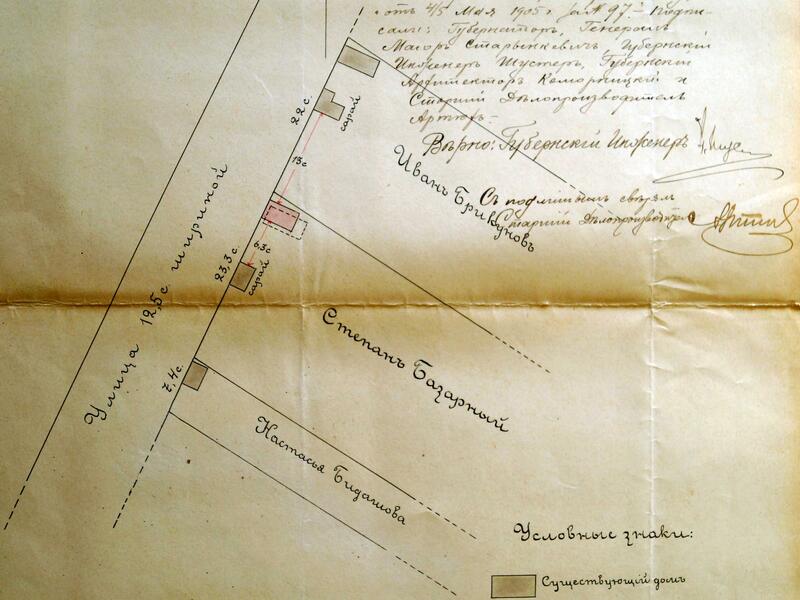 отъ 4/5 Мая 1905 г. за № 97. – Подпи-
сали: Губернаторъ, Генералъ
Маiоръ Старынкевичъ, Губернскiй
Инженеръ Шустеръ, Губернскiй
Архитекторъ и
Старшiй Дѣлопроизводитель
Вѣрно: Губернскiй Инженеръ
Съ подлиннымъ свѣрялъ
Старшiй Дѣлопроизводитель
22 с.
сарай
13 с
Иванъ Брикуновъ
6,3 с
23,3 с.
сарай
Улица 12,5 с. шириной
Степанъ Базарный
7,4 с.
Настасья Бидашова
Условные знаки:
Существующiй домъ